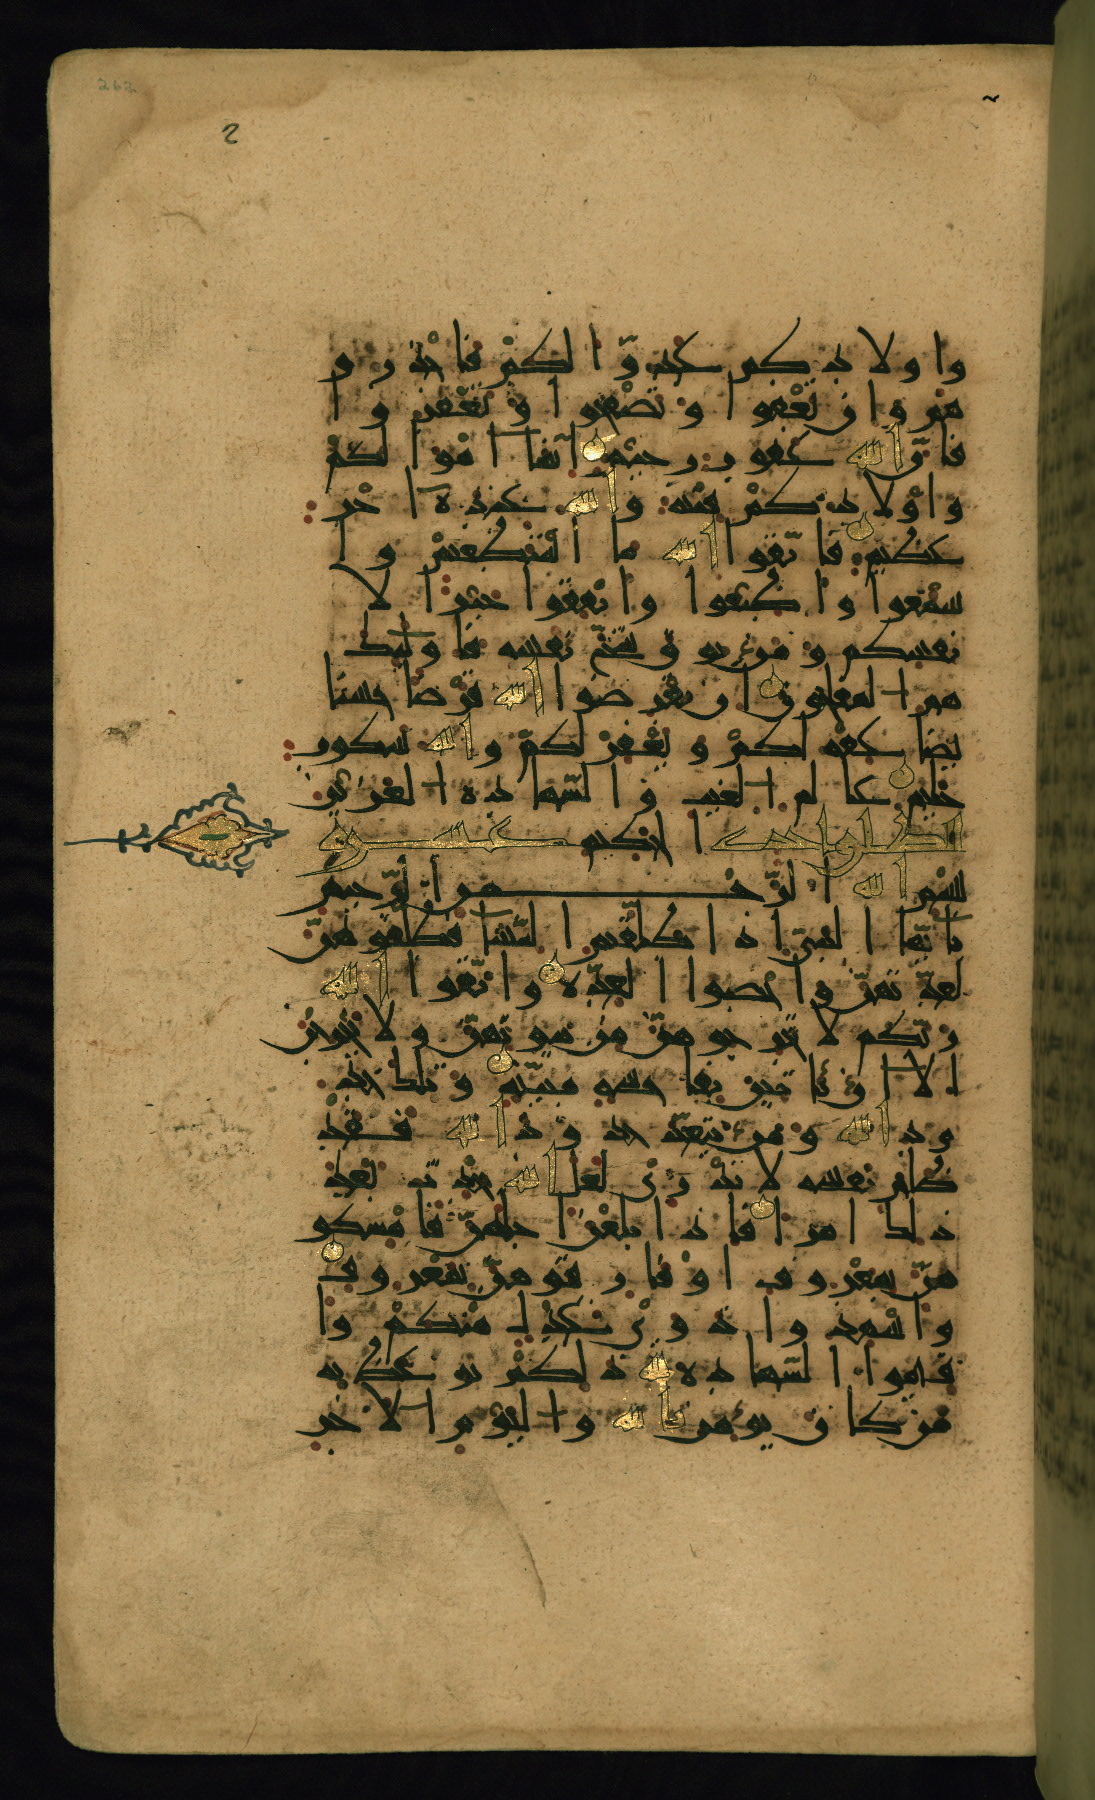 262
واولادكم عدوّا لكم فاحذرو
هم وان تعفوا وتصفحوا وتغفروا
فانّ الله غفور رحيم انّما اموالكم
واولادكم فتنه والله عنده اجر
عظيم فاتّقوا الله ما استطعتم وا
سمعوا واطيعوا وانفقوا خيرا لا
نفسكم ومن يوق شحّ نفسه فاوليك
هم المفلحون ان تقرضوا الله قرضا حسنا
يضاعفه لكم ويغفر لكم والله شكور
حليم عالم الغيب والشّهاده العزيز
احدى الحكيم عشره
بسم الله الرّحمن الرّحيم
يايّها النبىّ اذا طلّقتم النّسا فطلّقوهنّ
لعدّتهنّ واحصوا العدّه واتّقوا الله
ربّكم لا تخرجوهنّ من بيوتهنّ ولا يخرجن
الا ان ياتين بفاحشه مبيّنه وتلك حد
ود الله ومن يتعدّ حدود الله فقد
ظلم نفسه لا تدرى لعل الله يحدث بعد
ذلك امرا فاذا بلغن اجلهنّ فامسكو
هنّ بمعروف او فارقوهنّ بمعروف
واشهدوا ذوى عدل منكم وا
قيموا الشّهاده لله ذلكم يوعظ به
من كان يومن بالله واليوم الاخر